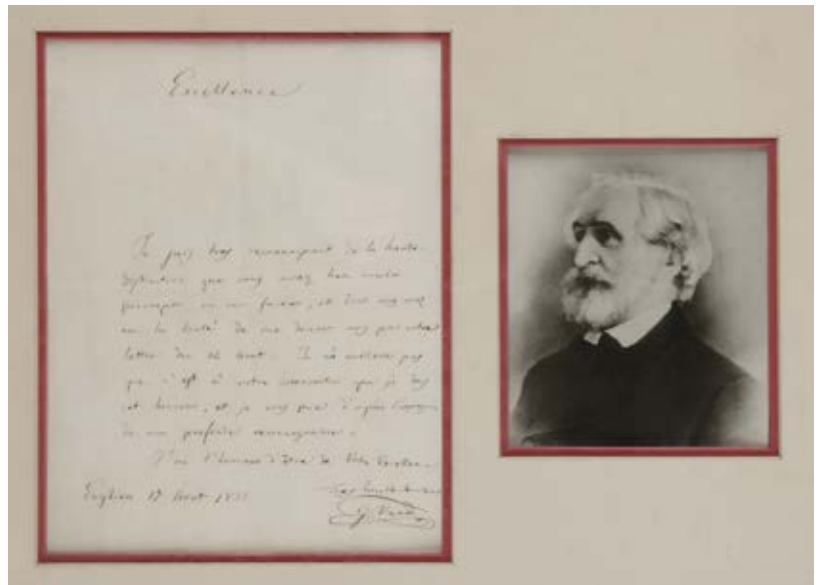 Excellence
Je suis très reconnaissant de la haute
distinction que vous avez bien voulu
en ma faveur, et dont vous avez
eu la bonté de me donner par votre
lettre du août. Je n'oublierai pas
que c'est à votre que je dois
cet honneur, et je vous prie d'agréer
de ma profonde reconnaissance.
J'ai l'honneur d'être de Votre Excellence
Enghien 17 Août
G. Verdi